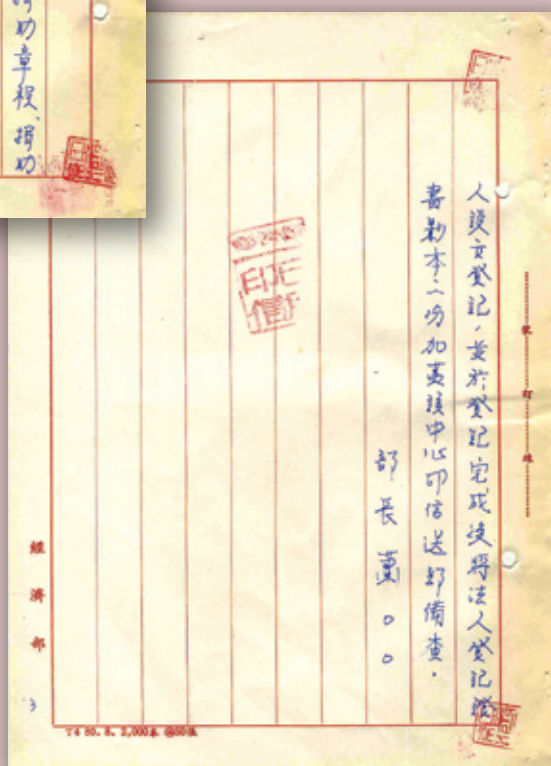 捐助章程、捐助
人設立登記，並於登記完成後將法人登記證
書影本二份加蓋該中心印信送部備查。
部長蕭○○
裝訂線
經濟部
3
74 80.8. 2,000本 @50張